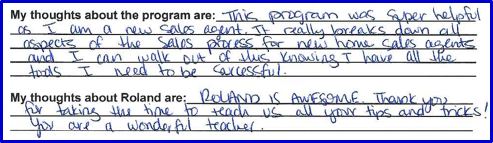 My thoughts about the program are: This program was super helpful
as I am a new sales agent. It really breaks down all
aspects of the sales process for new home sales agents
and I can walk out of this knowing I have all the
tools I need to be successful.
My thoughts about Roland are: ROLAND IS AWESOME. Thank you
for taking the time to teach us all your tips and tricks!
You are a wonderful teacher.